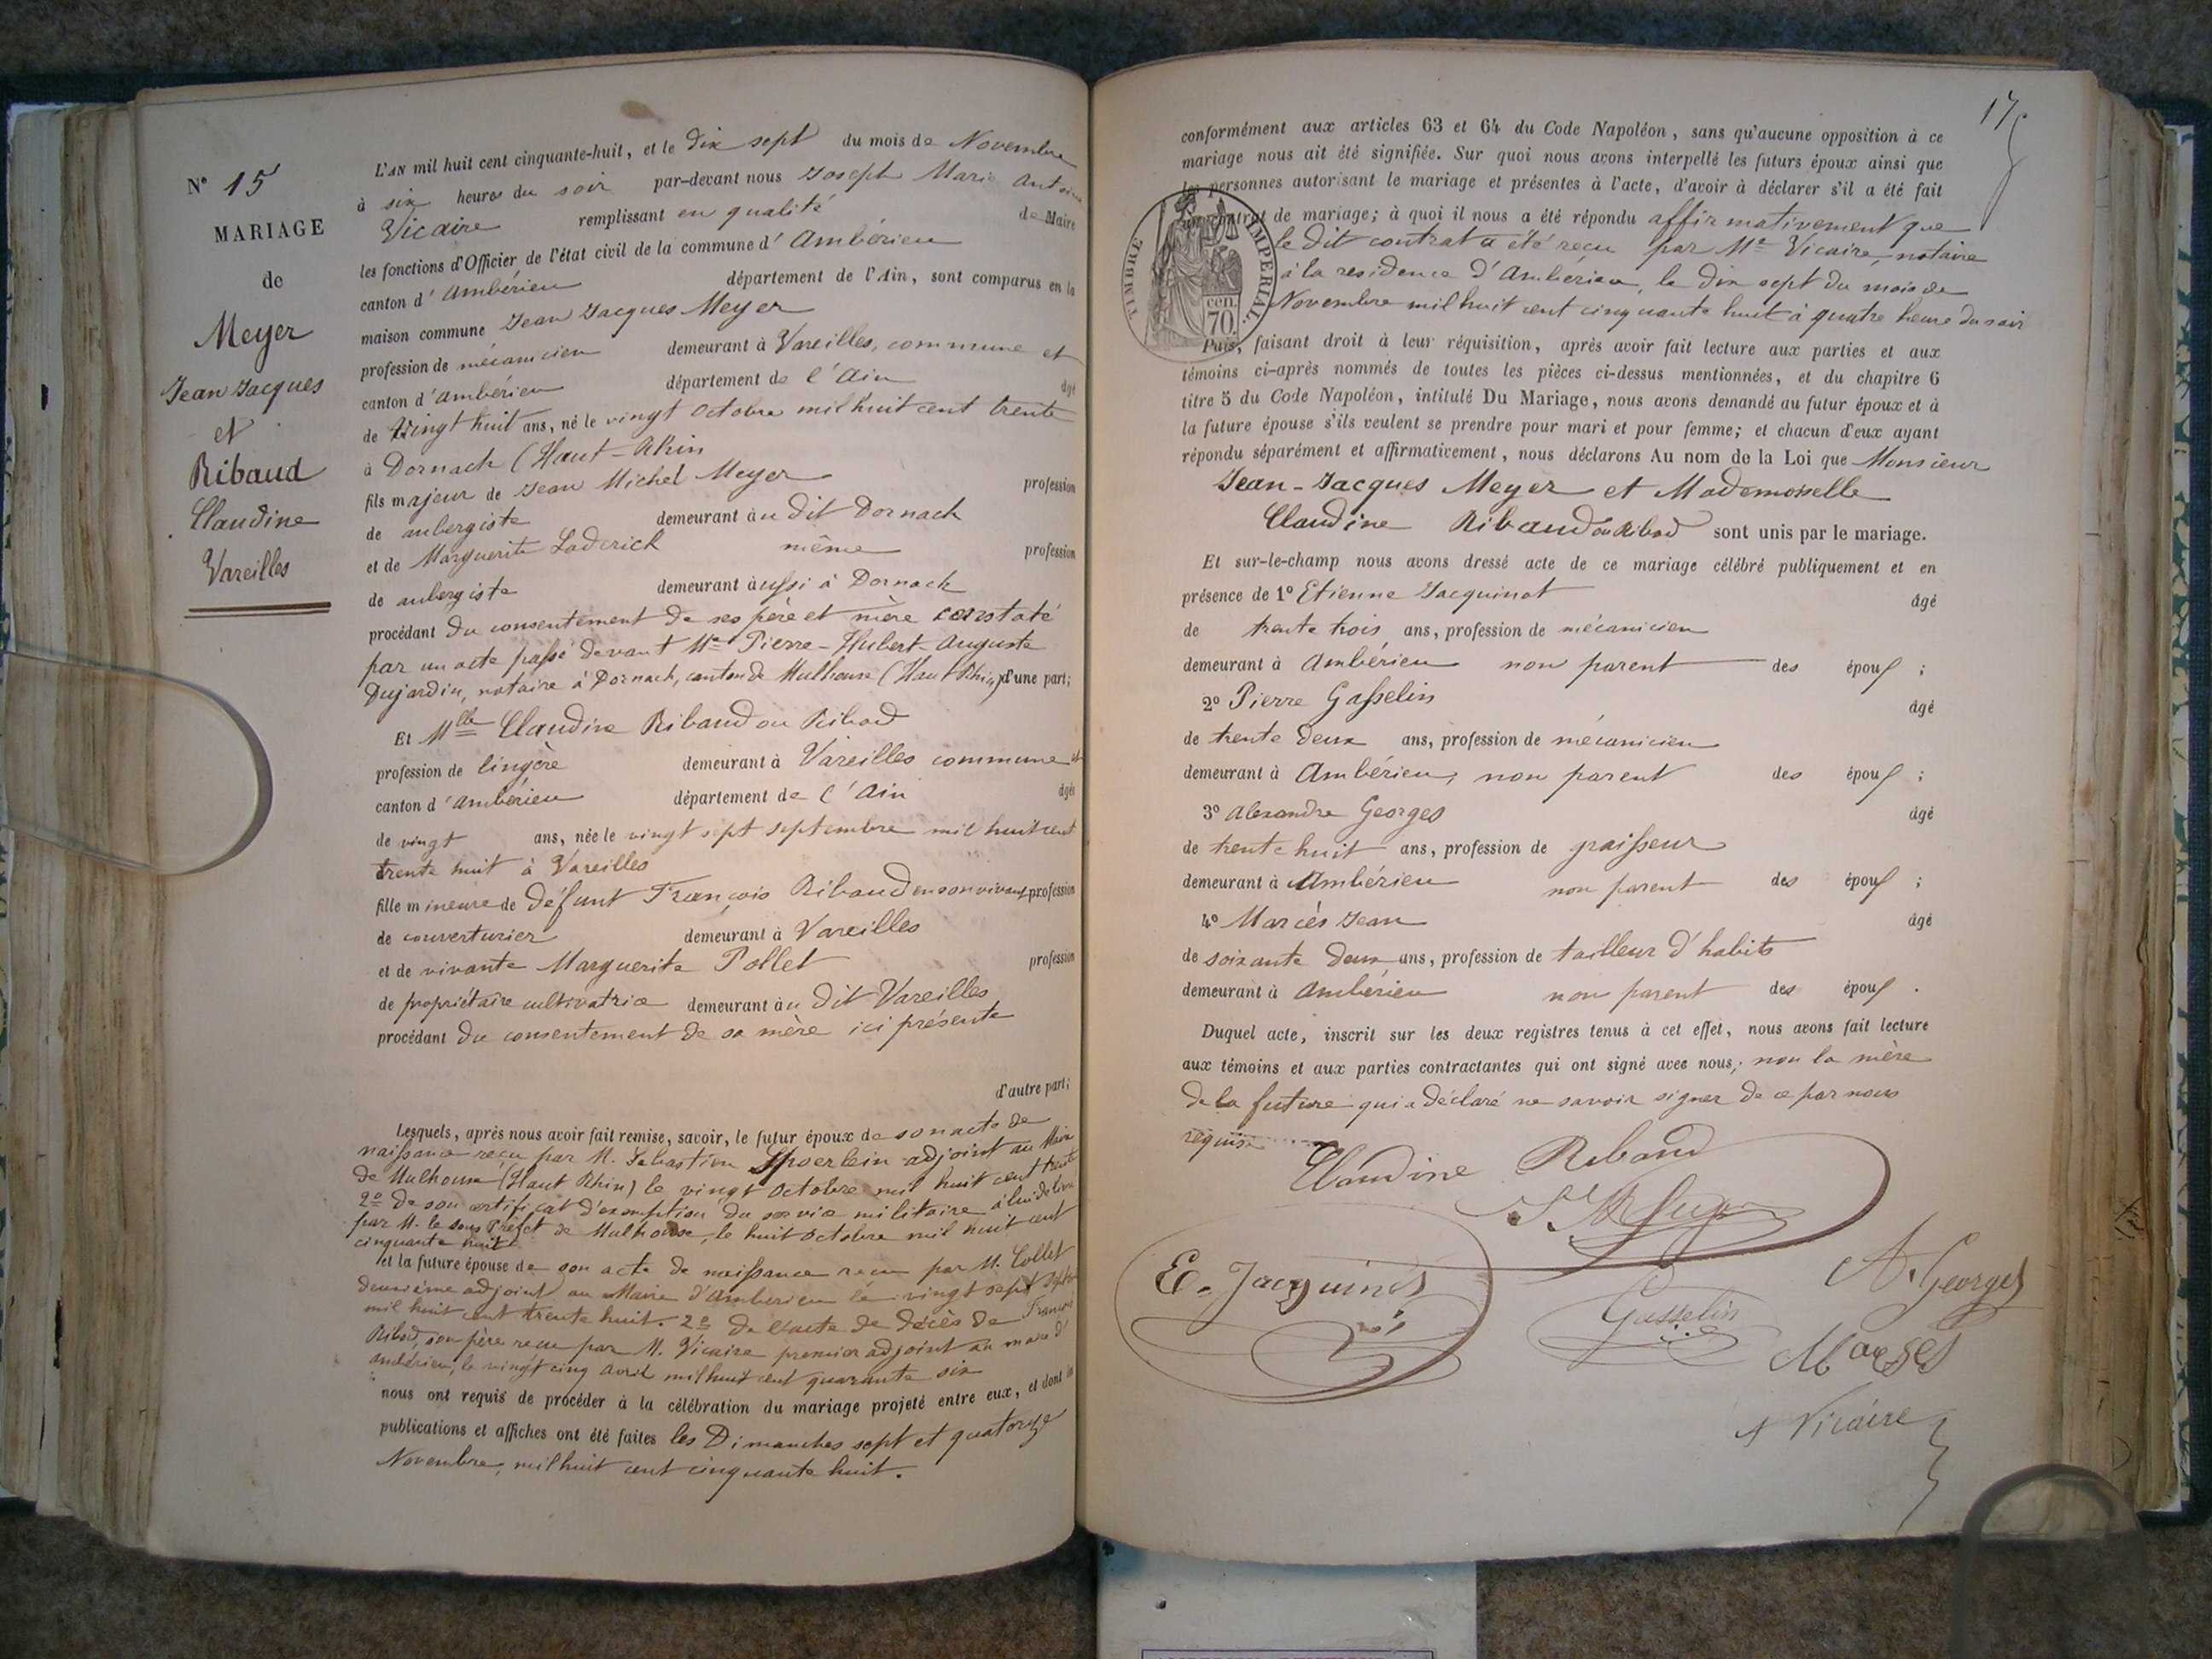 N° 15
MARIAGE
de
Meyer
Jean Jacques
et
Ribaud
Claudine
Vareilles
L'AN mil huit cent cinquante-huit, et le dix sept du mois de Novembre
à six heures du soir par-devant nous Joseph Marie Antoine
Vicaire remplissant en qualité de Maire
les fonctions d'Officier de l'état civil de la commune d' Ambérieu
canton d' Ambérieu département de l'Ain, sont comparus en la
maison commune Jean Jacques Meyer
profession de mécanicien demeurant à Vareilles, commune et
canton d'Ambérieu département de l'Ain âgé
de vingt huit ans, né le vingt Octobre mil huit cent trente
à Dornach (Haut-Rhin
fils majeur de Jean Michel Meyer profession
de aubergiste demeurant àu dit Dornach
et de Marguerite Laderich même profession
de aubergiste demeurant àussi à Dornach
procédant du consentement de ses père et mère constaté
par un acte passé devant Me Pierre-Hubert-Auguste
Dujardin, notaire à Dornach, canton de Mulhouse (Haut Rhin) d'une part;
Et Mlle Claudine Ribaud ou Ribod
profession de lingère demeurant à Vareilles commune et
canton d'Ambérieu département de l'Ain âgée
de vingt ans, née le vingt sept septembre mil huit cent
trente huit à Vareilles
fille mineure de défunt François Ribaud en son vivant profession
de couverturier demeurant à Vareilles
et de vivante Marguerite Pollet profession
de propriétaire cultivatrice demeurant àu dit Vareilles
procédant du consentement de sa mère ici présente
d'autre part;
Lesquels, après nous avoir fait remise, savoir, le futur époux de son acte de
naissance reçu par M. Sebastien Spoerlein adjoint au Maire
de Mulhouse (Haut Rhin) le vingt Octobre mil huit cent trente
2° de son certificat d'exemption du service militaire à lui délivré
par M. le sous Préfet de Mulhouse, le huit Octobre mil huit cent
cinquante huit
et la future épouse de son acte de naissance reçu par M. Collet
deuxième adjoint au Maire d'Ambérieu le vingt sept septbre
mil huit cent trente huit. 2° de l'acte de décès de François
Ribod, son père reçu par M. Vicaire premier adjoint au maire d'
Ambérieu, le vingt cinq Avril mil huit cent quarante six
nous ont requis de procéder à la célébration du mariage projeté entre eux, et dont les
publications et affiches ont été faites les Dimanches sept et quatorze
Novembre, mil huit cent cinquante huit.
17
conformément aux articles 63 et 64 du Code Napoléon, sans qu'aucune opposition à ce
mariage nous ait été signifiée. Sur quoi nous avons interpellé les futurs époux ainsi que
les personnes autorisant le mariage et présentes à l'acte, d'avoir à déclarer s'il a été fait
contrat de mariage; à quoi il nous a été répondu affirmativement que
le dit contrat a été reçu par Me Vicaire, notaire
à la residence d'Ambérieu, le dix sept du mois de
Novembre mil huit cent cinquante huit à quatre heure du soir
TIMBRE IMPERIAL
cen.
70.
Puis, faisant droit à leur réquisition, après avoir fait lecture aux parties et aux
témoins ci-après nommés de toutes les pièces ci-dessus mentionnées, et du chapitre 6
titre 5 du Code Napoléon, intitulé Du Mariage, nous avons demandé au futur époux et à
la future épouse s'ils veulent se prendre pour mari et pour femme; et chacun d'eux ayant
répondu séparément et affirmativement, nous déclarons Au nom de la Loi que Monsieur
Jean-Jacques Meyer et Mademoiselle
Claudine Ribaud ou Ribod sont unis par le mariage.
Et sur-le-champ nous avons dressé acte de ce mariage célébré publiquement et en
présence de 1° Etienne Jacquinot âgé
de trente trois ans, profession de mécanicien
demeurant à Ambérieu non parent des époux ;
2° Pierre Gasselin âgé
de trente deux ans, profession de mécanicien
demeurant à Ambérieu, non parent des époux ;
3° Alexandre Georges âgé
de trente huit ans, profession de graisseur
demeurant à Ambérieu non parent des époux ;
4° Marcès Jean âgé
de soixante deux ans, profession de tailleur d'habits
demeurant à Ambérieu non parent des époux .
Duquel acte, inscrit sur les deux registres tenus à cet effet, nous avons fait lecture
aux témoins et aux parties contractantes qui ont signé avec nous, non la mère
de la future qui a déclaré ne savoir signer de ce par nous
requise
Claudine Ribaud
E. Jacquinot
A. Georges
Gasselin
Marses
A Vicaire